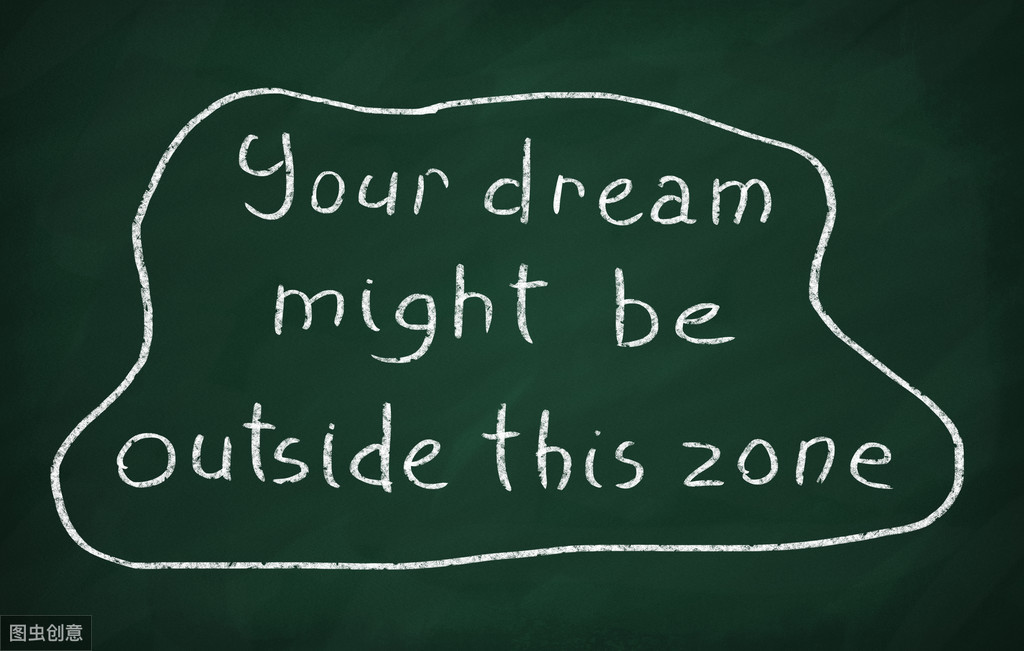 Your dream
might be
outside this zone
图虫创意